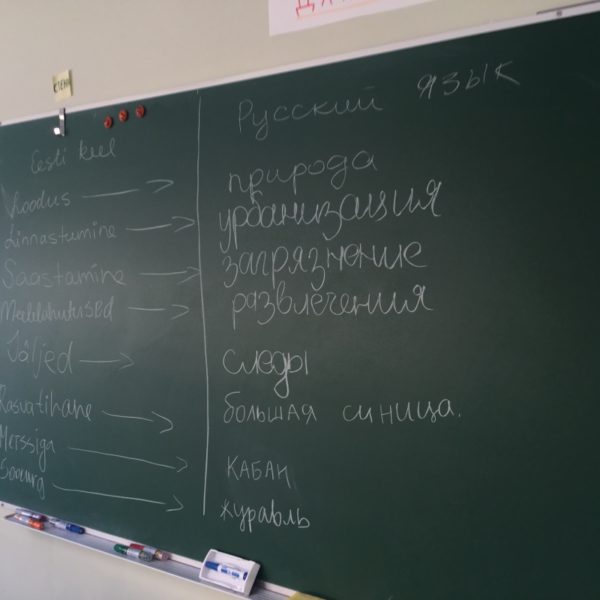 СТЕНА
Eesti keel
Русский язык
Loodus → природа
Linnastumine → урбанизация
Saastamine → загрязнение
Meelelahutused → развлечения
Jäljed → следы
Rasvatihane → большая синица.
Metssiga → кабан
Sookurg → журавль